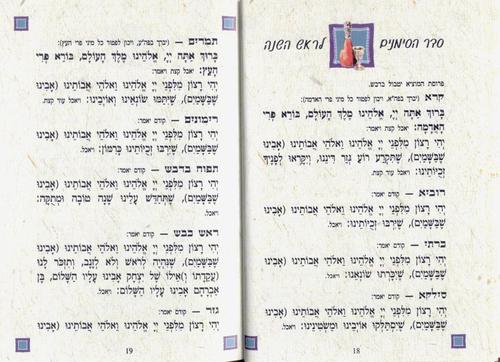 סדר הסימנים לראש השנה
פרוסת המוציא יטבול בדבש.
קרא — (יברך בפה"א, ויכון לפטור כל מיני פרי האדמה):
בָּרוּךְ אַתָּה יְיָ, אֱלֹהֵינוּ מֶלֶךְ הָעוֹלָם, בּוֹרֵא פְּרִי
הָאֲדָמָה: ויאכל קצת ויאמר:
יְהִי רָצוֹן מִלְּפָנֶי יְיָ אֱלֹהֵינוּ וֵאלֹהֵי אֲבוֹתֵינוּ (אָבִינוּ
שֶׁבַּשָּׁמַיִם), שֶׁתִּקְרַע רוֹעַ גְּזַר דִּינֵנוּ, וְיִקָּרְאוּ לְפָנֶיךָ
זְכֻיּוֹתֵינוּ: ויאכל עוד קצת.
רוביא — קודם יאמר:
יְהִי רָצוֹן מִלְּפָנֶי יְיָ אֱלֹהֵינוּ וֵאלֹהֵי אֲבוֹתֵינוּ (אָבִינוּ
שֶׁבַּשָּׁמַיִם), שֶׁיִּרְבּוּ זְכֻיּוֹתֵינוּ: ויאכל.
כרתי — קודם יאמר:
יְהִי רָצוֹן מִלְּפָנֶי יְיָ אֱלֹהֵינוּ וֵאלֹהֵי אֲבוֹתֵינוּ (אָבִינוּ
שֶׁבַּשָּׁמַיִם), שֶׁיִּכָּרְתוּ שׂוֹנְאֵנוּ: ויאכל.
סילקא — קודם יאמר:
יְהִי רָצוֹן מִלְּפָנֶי יְיָ אֱלֹהֵינוּ וֵאלֹהֵי אֲבוֹתֵינוּ (אָבִינוּ
שֶׁבַּשָּׁמַיִם), שֶׁיִּסְתַּלְּקוּ אוֹיְבֵינוּ וּמַשְׂטִינֵנוּ: ויאכל.
18
תמרים — (יברך בפה"ע, ויכון לפטור כל מיני פרי העץ):
בָּרוּךְ אַתָּה יְיָ, אֱלֹהֵינוּ מֶלֶךְ הָעוֹלָם, בּוֹרֵא פְּרִי
הָעֵץ: יאכל קצת ויאמר:
יְהִי רָצוֹן מִלְּפָנֶי יְיָ אֱלֹהֵינוּ וֵאלֹהֵי אֲבוֹתֵינוּ (אָבִינוּ
שֶׁבַּשָּׁמַיִם), שֶׁיִּתַּמּוּ שׂוֹנְאֵינוּ וְאוֹיְבֵינוּ: ויאכל עוד קצת.
רימונים — קודם יאמר:
יְהִי רָצוֹן מִלְּפָנֶי יְיָ אֱלֹהֵינוּ וֵאלֹהֵי אֲבוֹתֵינוּ (אָבִינוּ
שֶׁבַּשָּׁמַיִם), שֶׁיִּרְבּוּ זְכֻיּוֹתֵינוּ כָּרִמּוֹן: ויאכל.
תפוח בדבש — קודם יאמר:
יְהִי רָצוֹן מִלְּפָנֶי יְיָ אֱלֹהֵינוּ וֵאלֹהֵי אֲבוֹתֵינוּ (אָבִינוּ
שֶׁבַּשָּׁמַיִם), שֶׁתְּחַדֵּשׁ עָלֵינוּ שָׁנָה טוֹבָה וּמְתֻקָּה:
ויאכל.
ראש כבש — קודם יאמר:
יְהִי רָצוֹן מִלְּפָנֶי יְיָ אֱלֹהֵינוּ וֵאלֹהֵי אֲבוֹתֵינוּ (אָבִינוּ
שֶׁבַּשָּׁמַיִם), שֶׁנִּהְיֶה לְרֹאשׁ וְלֹא לְזָנָב, וְתִזְכֹּר לָנוּ
(עֲקֵדָתוֹ וְ)אֵילוֹ שֶׁל יִצְחָק אָבִינוּ עָלָיו הַשָּׁלוֹם, בֶּן
אַבְרָהָם אָבִינוּ עָלָיו הַשָּׁלוֹם: ויאכל.
גזר — קודם יאמר:
יְהִי רָצוֹן מִלְּפָנֶי יְיָ אֱלֹהֵינוּ וֵאלֹהֵי אֲבוֹתֵינוּ (אָבִינוּ
19